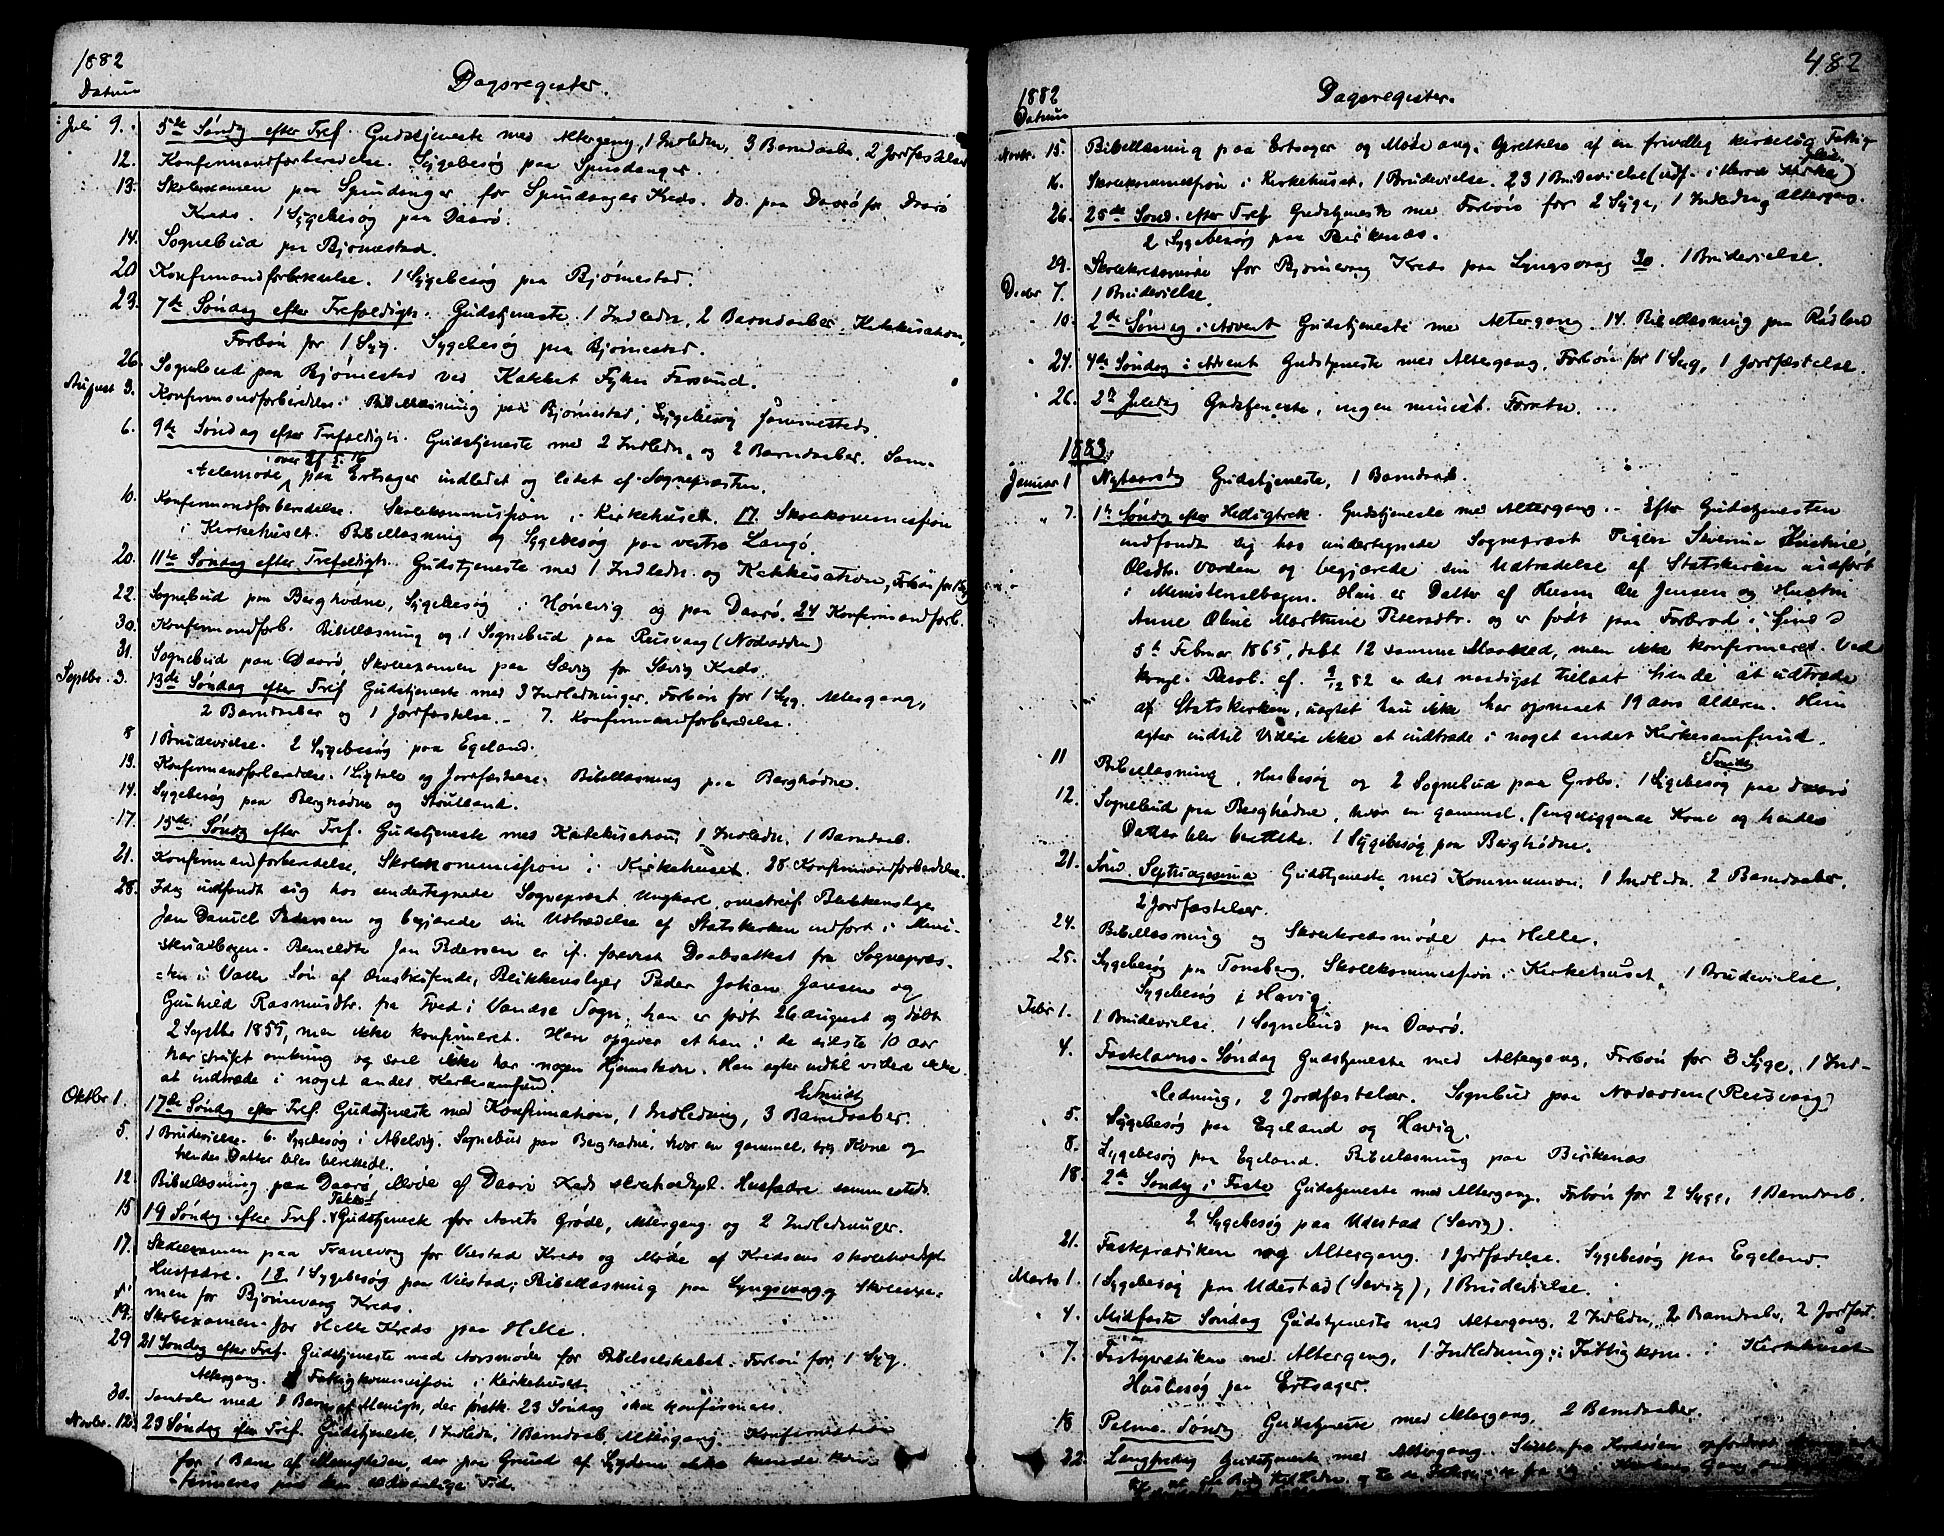 1882
Datum
Dagsregister.
Juli 9. 5te Søndg efter Tref. Gudstjeneste med Altergang, 1 Indledn, 3 Barndaaber, 2 Jordfæstelser
12. Konfirmandforberedelse. Sygebesøg paa Spindanger.
13. Skoleexamen paa Spindanger for Spindanger Kreds. do. paa Daarø for Daarø
Kreds. 1 Sygebesøg paa Daarø.
14. Sognebud paa Bjørnestad.
20 Konfirmandforberedelse. 1 Sygebesøg paa Bjørnestad.
23. 7de Søndag efter Trefoldigh. Gudstjeneste 1 Indledn, 2 Barndaaber, Katekisation,
Forbøn for 1 Syg. Sygebesøg paa Bjørnestad.
26. Sognebud paa Bjørnestad ved Farsund.
August 3. Konfirmandforberedelse. Bibellæsning paa Bjørnestad, Sygebesøg sammesteds.
6. 9de Søndag efter Trefoldigh. Gudstjeneste med 2 Indledn. og 2 Barndaaber. Sam-
talemøde over paa Ertsager indledet og ledet af Sognepræsten.
10. Konfirmandforberedelse. Skolekommission i Kirkehuset. 17. Skolekommission
i Kirkehuset. Bibellæsning og Sygebesøg paa vestre Langø.
20. 11te Søndag efter Trefoldigh. Gudstjeneste med 1 Indledn. og Katekisation, Forbøn for 1 Syg
22. Sognebud paa Berghødne, Sygebesøg i Hønevig og paa Daarø. 24 Konfirmandforb.
30. Konfirmandforb. Bibellæsning og 1 Sognebud paa Reusvaag (Nodaaden)
31. Sognebud paa Daarø, Skoleexamen paa Sævig for Sævig Kreds.
Septbr. 3. 13de Søndag efter Tref. Gudstjeneste med 3 Indledninger, Forbøn for 1 Syg, Altergang,
2 Barndaaber og 1 Jordfæstelse. - 7. Konfirmandforberedelse.
8 1 Brudevielse. 2 Sygebesøg paa Egeland.
13. Konfirmandforberedelse. 1 Ligtale og Jordfæstelse. Bibellæsning paa Berghødne.
14. Sygebesøg paa Berghødne og Stoutland.
17. 15de Søndg efter Tref. Gudstjeneste med Katekisation, 1 Indledn, 1 Barndaab.
21. Konfirmandforberedelse, Skolekommission i Kirkehuset. 28. Konfirmandforberedelse.
28. Idag indfandt sig hos undertegnede Sognepræst Ungkarl, omstreif. Blikkenslager
Jan Daniel Pedersen og begjærede sin Udtrædelse af Statskirken indført i Mini-
sterialbogen. Bemeldte Jan Pedersen er if. forevist Daabsattest fra Sognepræs-
ten i Valle Søn af Omstreifende, Blikkenslager Peder Johan Jansen og
Gunhild Rasmusdtr. fra Tved i Vandsø Sogn, han er født 26 August og døbt
2 Septbr 1855, men ikke konfirmeret. Han opgiver at han i de sidste 10 aar
har streifet omkring og sael ikke har nogen Hjemsteder. Han agter indtil videre ikke
at indtræde i noget andet Kirkesamfund.
Oktbr 1. 17de Søndag efter Tref. Gudstjeneste med Konfirmation, 1 Indledning, 3 Barndaaber.
5. 1 Brudevielse. 6. Sygebesøg i Abelvig. Sognebud paa Berghødne, hvor en gammel, syg Kone og
hendes Datter blev berettede.
12. Bibellæsning paa Daarø Møde af Daarø Keds Husfædre sammesteds.
15 19 Søndag efter Tref. Takke-Gudstjeneste for Aarets Grøde, Altergang og 2 Indledninger.
17. Skoleexamen paa Tranevog for Viestad Kreds og Møde af Kredsens
Husfædre. 18 1 Sygebesøg paa Viestad; Bibellæsning paa Lyngsvaag, Skoleexa-
men for Bjørnevaag Kreds.
19. Skoleexamen for Helle Kreds paa Helle.
29 21 Søndag efter Tref. Gudstjeneste med Aarsmøde for Bibelselskabet. Forbøn for 1 Syg.
Altergang. Fattigkommission i Kirkehuset.
30. Samtale med 1 Barn af Menigh, der førstk. 23 Søndag skal konfirmeres.
Novbr. 12. 23 Søndag efter Tref. Gudstjeneste, 1 Indledn, 1 Barndaab Altergang. Konfirmation
for 1 Barn af Menigheden, der paa Grund af Sygdom ikke kunde kon-
firmeres paa den sædvanlige Tid.
482
1882
Datum
Dagsregister.
Novbr. 15. Bibellæsning paa Ertsager og Møde ang. Oprettelse af en frivillig kirkelig Fattig-
pleie.
16. Skolekommission i Kirkehuset. 1 Brudevielse. 23 1 Brudevielse (udf. i Herred Kirke)
26. 25de Sønd. efter Tref. Gudstjeneste med Forbøn for 2 Syge, 1 Indledng Altergang.
2 Sygebesøg paa Birkenæs.
29. Skolekredsmøde for Bjørnevaag Kreds paa Lyngsvaag 30. 1 Brudevielse.
Decbr 7. 1 Brudevielse.
10. 2den Søndag i Advent Gudstjeneste med Altergang. 14. Bibellæsning paa Rødland
24. 4de Søndag i Advent Gudstjeneste med Altergang, Forbøn for 1 Syg, 1 Jordfæstelse.
26. 2n Juledag Gudstjeneste, ingen minist. Forretn.
1883.
Januar 1 Nytaarsdg Gudstjeneste, 1 Barndaab.
7. 1n Søndag efter Helligtrek. Gudstjeneste med Altergang. - Efter Gudstjenesten
indfandt sig hos undertegnede Sognepræst Pigen Severine Kristine
Olsdtr. Vorden og begjærede sin Udtrædelse af Statskirken indført
i Ministerialbogen. Hun er Datter af Husm Ole Jensen og Hustru
Anne Oline Marthine Petersdtr. og er født paa Forbrod i Lindø
5te Februar 1865, døbt 12 samme Maaned, men ikke konfirmeret. Ved
kongl. Resol. af 9/12 82 er det naadigst tilladt hende at udtræde
af Statskirken, uagtet hun ikke har opnaaet 19 aars alderen. Hun
agter indtil Videre ikke at indtræde i noget andet Kirkesamfund.
11 Bibellæsning, Husbesøg og 2 Sognebud paa Grobs. 1 Sygebesøg paa Daarø
12. Sognebud paa Berghødne, hvor en gammel, sengeliggende Kone og hendes
Datter blev berettede. 1 Sygebesøg paa Berghødne.
21. Sønd. Septuagesima Gudstjeneste med Kommunion. 1 Indledn. 2 Barndaaber.
2 Jordfæstelser.
24. Bibellæsning og Skolekredsmøde paa Helle.
25. Sygebesøg paa Tonsberg. Skolekommission i Kirkehuset, 1 Brudevielse.
Sygebesøg i Havig.
Febr 1. 1 Brudevielse. 1 Sognebud paa Daarø.
4. Fastelavns-Søndag Gudstjeneste med Altergang, Forbøn for 3 Syge, 1 Ind-
ledning, 2 Jordfæstelser. Sognebud paa Nodaaden (Reusvaag)
5. Sygebesøg paa Egeland og Havig.
8. Sygebesøg paa Egeland. Bibellæsning paa Birkenæs
18. 2den Søndag i Faste Gudstjeneste med Altergang, Forbøn for 2 Syge, 1 Barndaab.
2 Sygebesøg paa Udestad (Sævig).
21. Fasteprædiken og Altergang. 1 Jordfæstelse. Sygebesøg paa Egeland.
Marts 1. 1 Sygebesøg paa Udestad (Sævig), 1 Brudevielse.
4. Midfaste Søndag Gudstjeneste med Altergang, 2 Indledn, 2 Barndaaber, 2 Jordfæst.
7. Fasteprædiken med Altergang, 1 Indledning; Fattigkom. i Kirkehuset
Husbesøg paa Ertsager.
18 Palme-Søndg Gudstjeneste med Altergang, 2 Barndaaber.
22. Langfredag Gudstjeneste med Altergang.